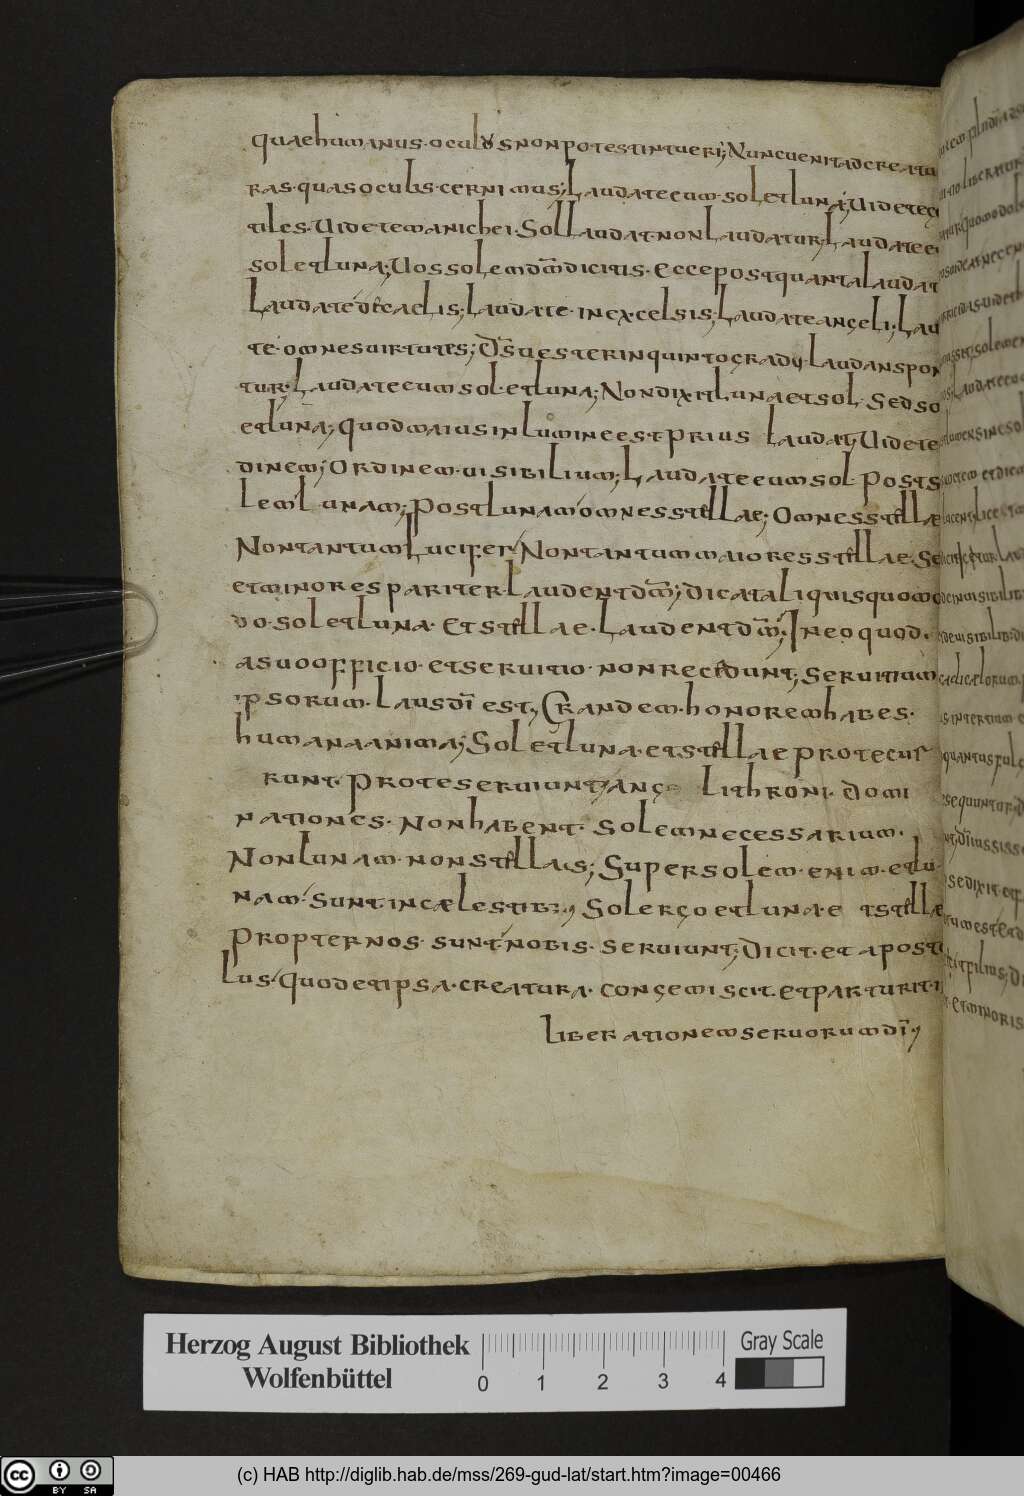 quaehumanus·oculusnonpotestintueri; Nuncuenitadcreatu
ras·quasoculis·cernimus; Laudatecum·soletluna; Uidete
tiles·Uidetemanichei·Sollaudat·nonLaudatur; Laudate
soletluna; Uossolemdm̄dicitis·Eccepostquantalaudat
Laudatedecaelis; Laudate·inexcelsis; Laudateangeli; Lau
te·omnesuirtutes; Ds̄uesterinquintogradu·Laudans
tur; Laudatecumsol·etluna; NondixitLunaetsol·Sedso
etluna; Quodmaiusinlumineestprius laudat; Uidete
dinem; Ordinem·uisibilium; Laudatecumsol·Post
lemlunam; Postlunamomnesstellae; Omnesstellae
NontantumLucifer; Nontantummaioresstellae·Se
etminorespariter·Laudentdm̄; Dicataliquisquomo
do·soletluna·Etstellae·Laudentdm̄; Ineoquod·
asuoofficio·etseruitio·nonrecedunt; seruitium
ipsorum·Lausdī est; Grandem·honoremhabes·
humanaanima; Soletluna·etstellaeprotecur
runt·Proteseruiunt; Ang lithroni·Domi
nationes·Nonhabent·solemnecessarium·
Nonlunam·nonstellas; Supersolem·enim·etlu
nam·suntincaelestib:; Solergoetluna·e tstellae
propternos·sunt·nobis·seruiunt; Dicit·et aposto
lus·Quodetipsa·creatura·congemiscit·Etparturit·
liberationemseruorumdī;
Herzog August Bibliothek
Wolfenbüttel
0 1 2 3 4
Gray Scale
cc BY SA
(c) HAB http://diglib.hab.de/mss/269-gud-lat/start.htm?image=00466